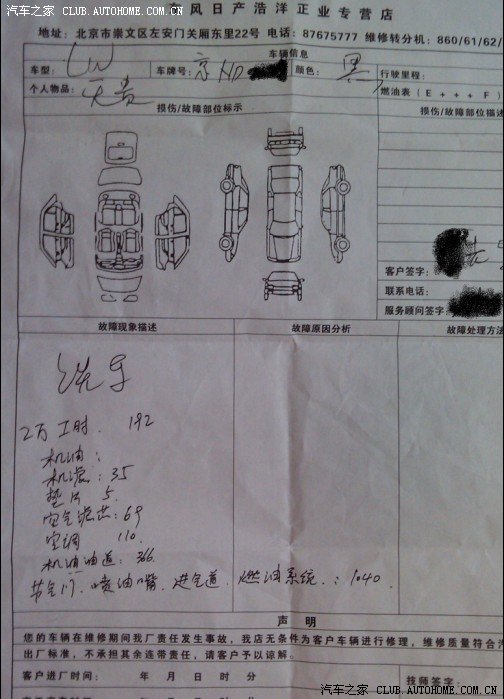 汽车之家 CLUB.AUTOHOME.COM.CN
风日产浩洋正业专营店
地址: 北京市崇文区左安门关厢东里22号 电话: 87675777 维修转分机: 860/61/62/
车辆信息
车型: 车牌号: 京 颜色: 黑 行驶里程:
个人物品: 无贵 燃油表(E + + + F)
损伤/故障部位标示 损伤/故障部位描述
客户签字:
联系电话:
服务顾问签字:
故障现象描述 故障原因分析 故障处理方法
洗车
2万 工时. 192
机油:
机滤: 35
垫片 5.
空气滤芯: 69
空调 110.
机油油道: 366
节气门. 喷油嘴. 进气道. 燃油系统.: 1040
声 明
您的车辆在维修期间我厂责任发生事故,我店无条件为客户车辆进行修理,维修质量符合汽
出厂标准,不承担其余连带责任,请客户予以谅解。
客户进厂时间: 年 月 日 时 分 技师签字:
汽车之家 CLUB.AUTOHOME.COM.CN